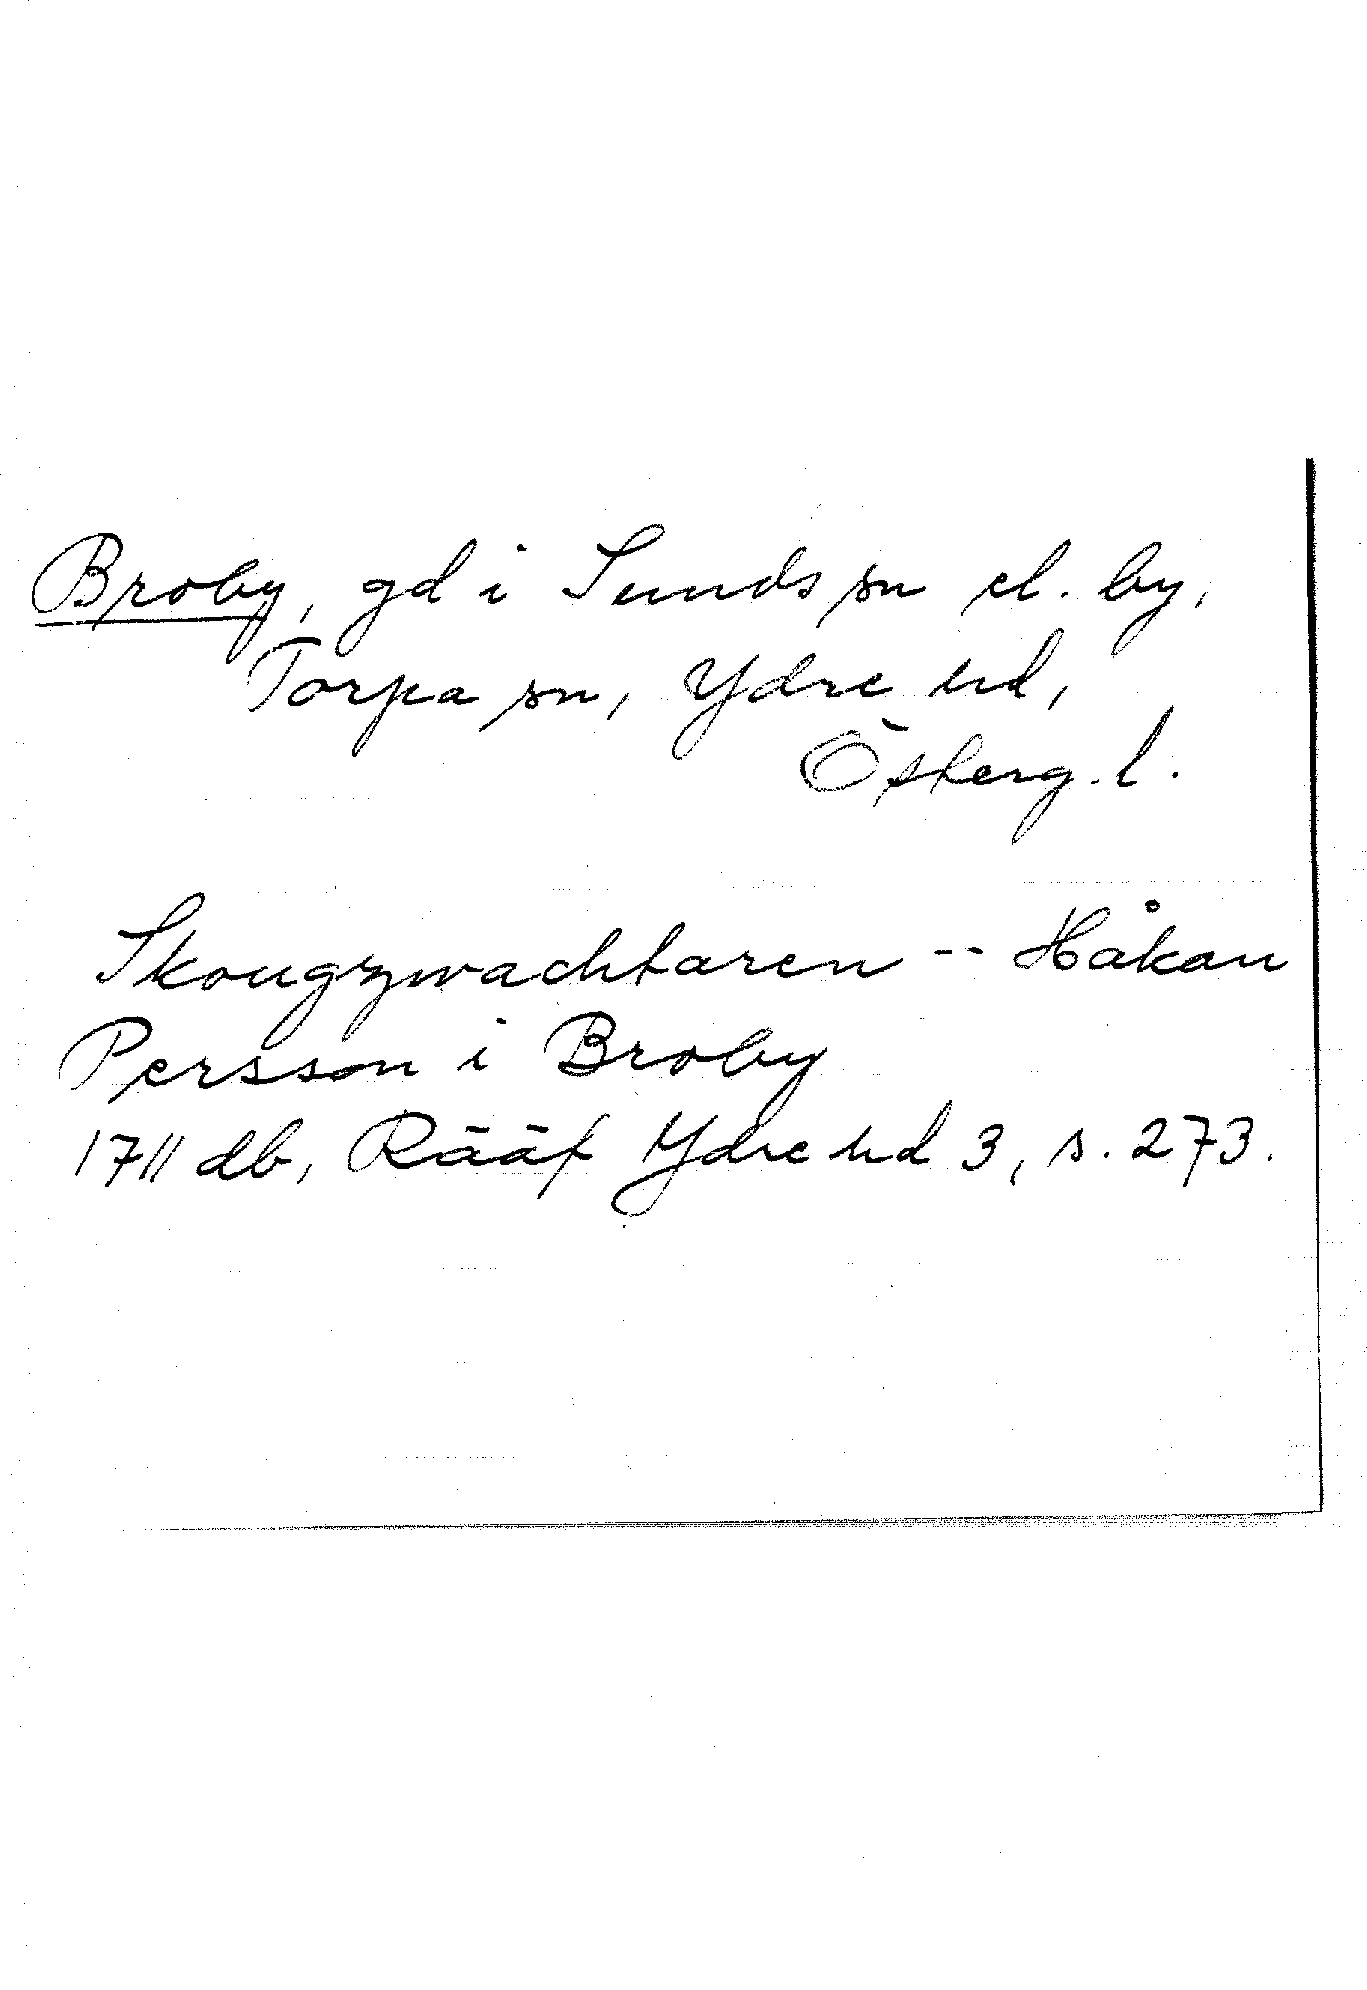 Broby, gd i Sunds sn el. by,
Torpa sn, Ydre hd,
Österg. l.
Skougzwachtaren -- Håkan
Persson i Broby
1711 db, Rääf Ydre hd 3, s. 273.